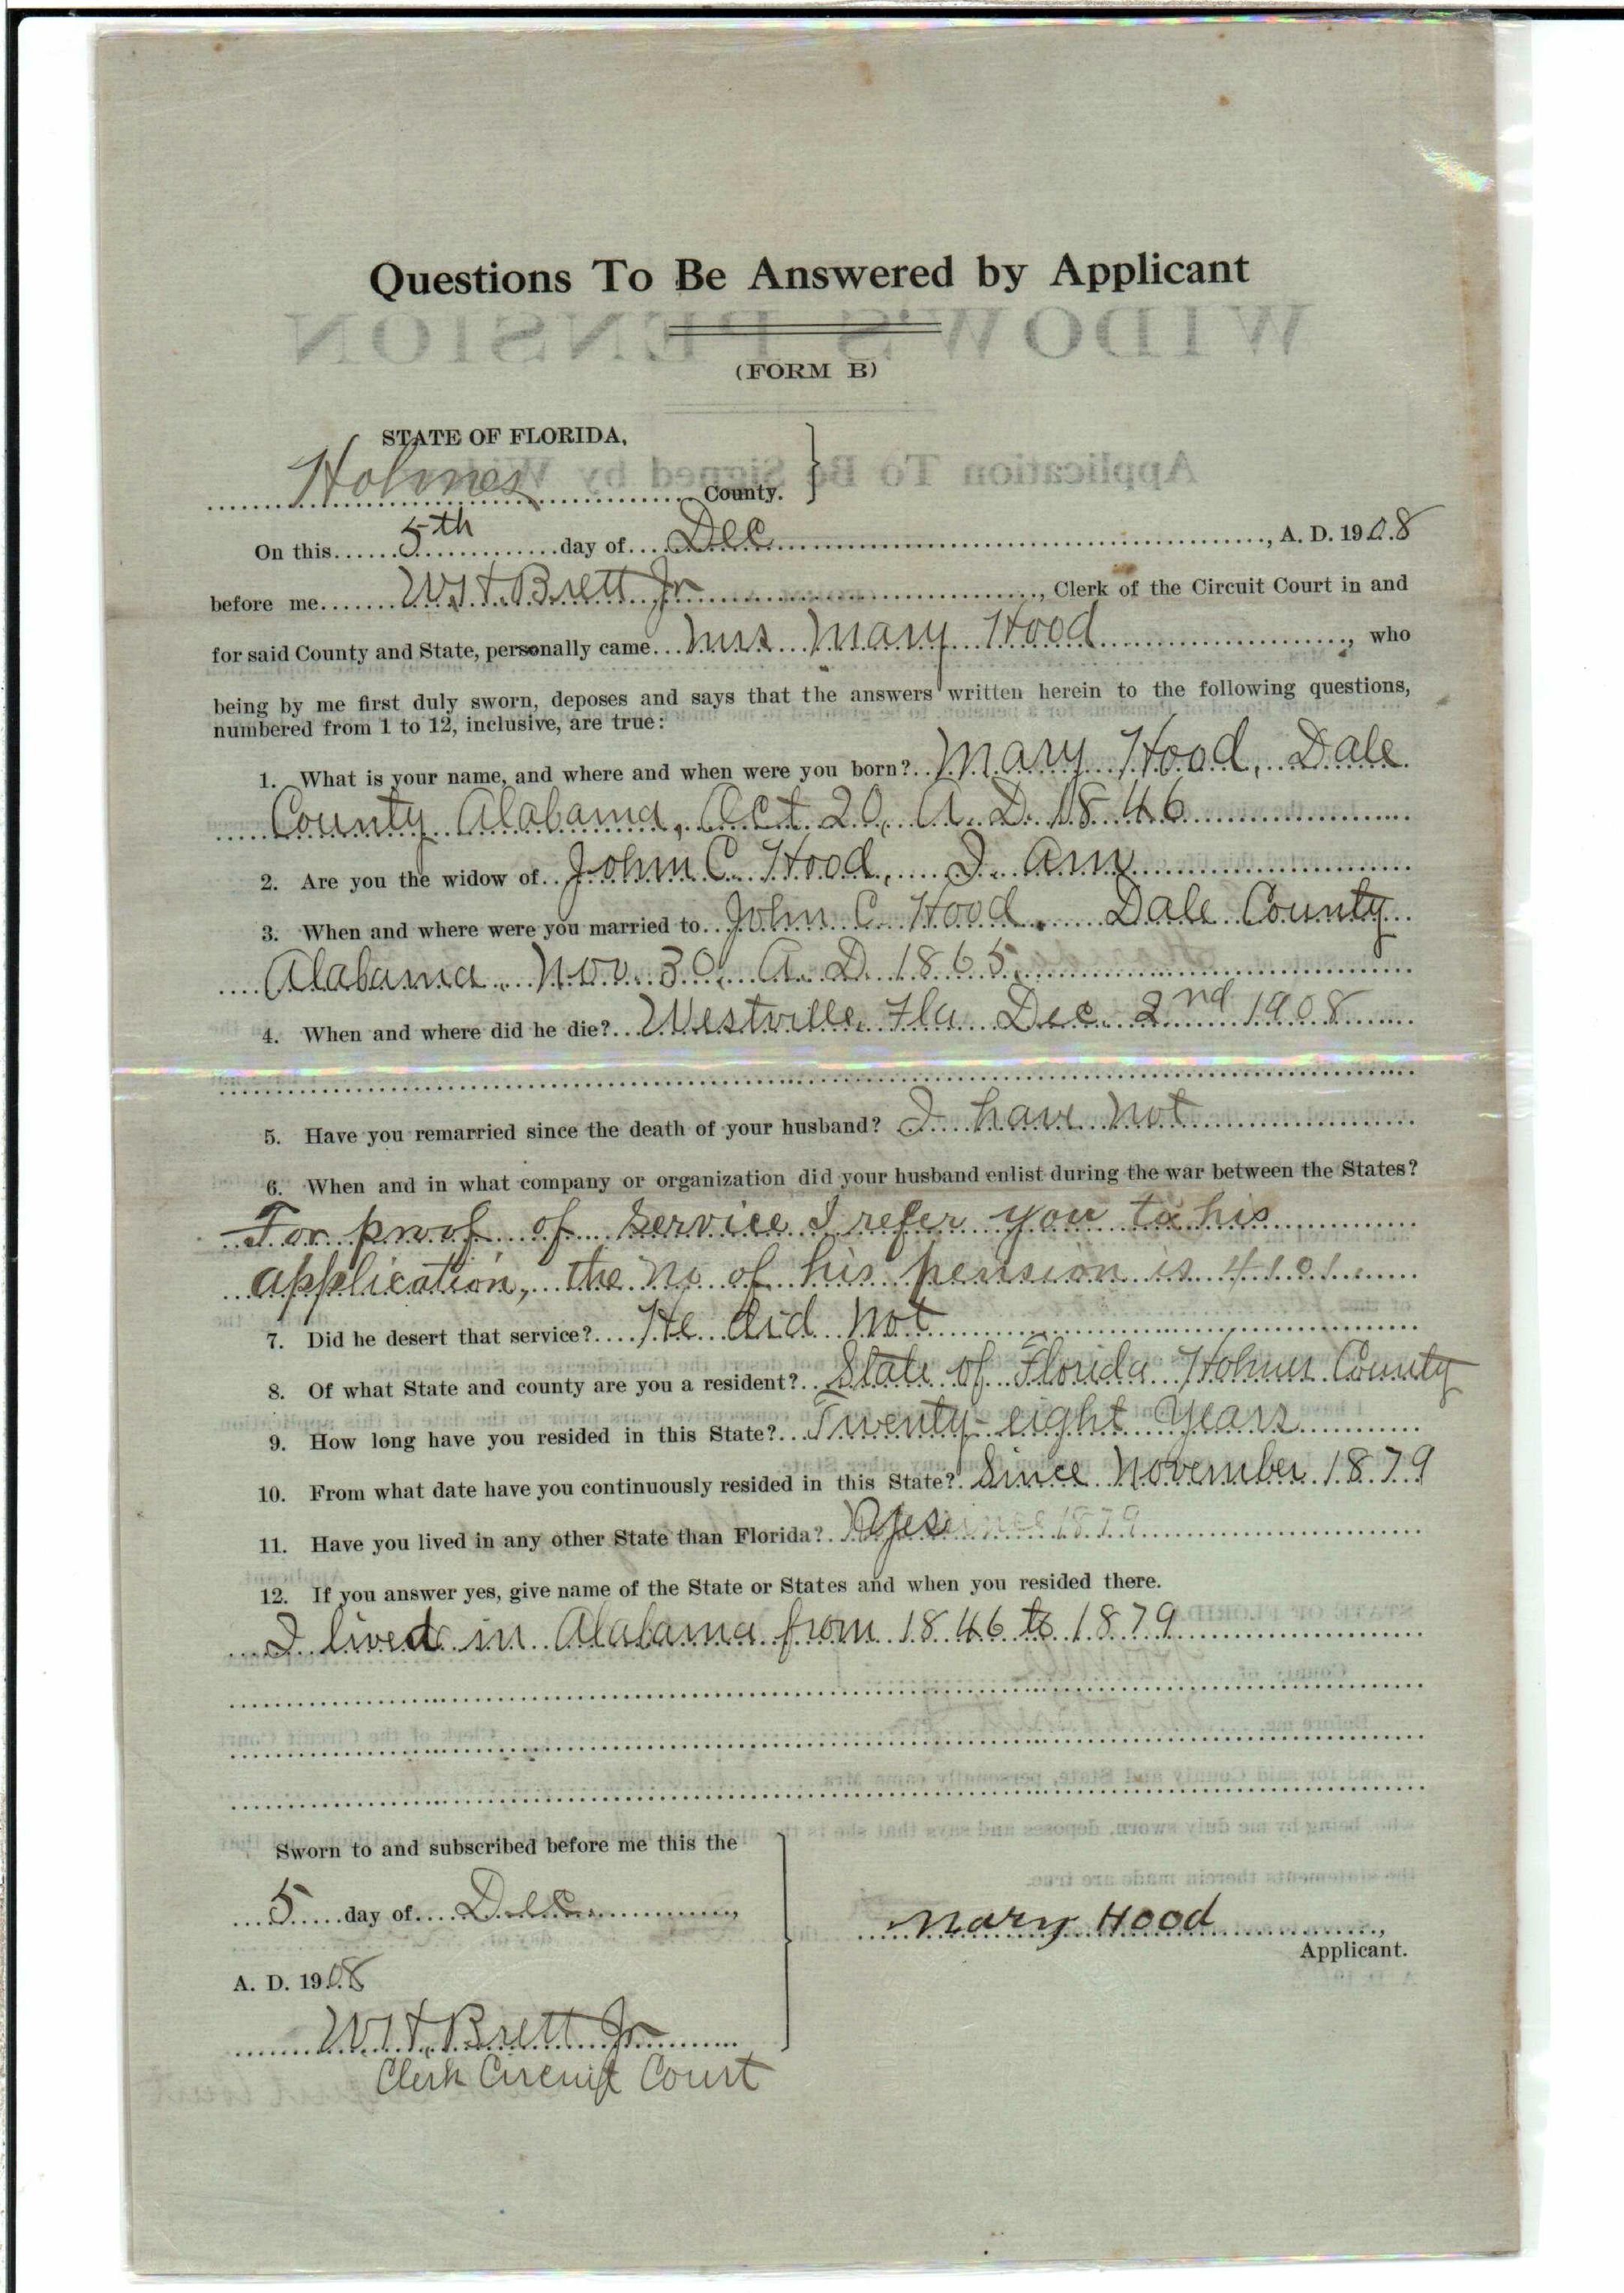 Questions To Be Answered by Applicant
WIDOW'S PENSION
(FORM B)
STATE OF FLORIDA,
Application To Be Signed by
Holmes County.
On this 5th day of Dec, A. D. 1908
before me W. H. Brett Jr, Clerk of the Circuit Court in and
for said County and State, personally came Mrs Mary Hood, who
being by me first duly sworn, deposes and says that the answers written herein to the following questions,
numbered from 1 to 12, inclusive, are true:
1. What is your name, and where and when were you born? Mary Hood, Dale
County Alabama, Oct 20, A. D. 1846
2. Are you the widow of John C. Hood, I am
3. When and where were you married to John C. Hood. Dale County
Alabama, Nov. 30, A. D. 1865
4. When and where did he die? Westville, Fla Dec. 2nd 1908
5. Have you remarried since the death of your husband? I have not
6. When and in what company or organization did your husband enlist during the war between the States?
For proof of service I refer you to his
application, the No of his pension is 4101
7. Did he desert that service? He did not
8. Of what State and county are you a resident? State of Florida Holmes County
9. How long have you resided in this State? Twenty-eight Years
10. From what date have you continuously resided in this State? Since November 1879
11. Have you lived in any other State than Florida? Yes
12. If you answer yes, give name of the State or States and when you resided there.
I lived in Alabama from 1846 to 1879
Sworn to and subscribed before me this the
5 day of Dec,
A. D. 1908
Mary Hood,
Applicant.
W. H. Brett Jr
Clerk Circuit Court